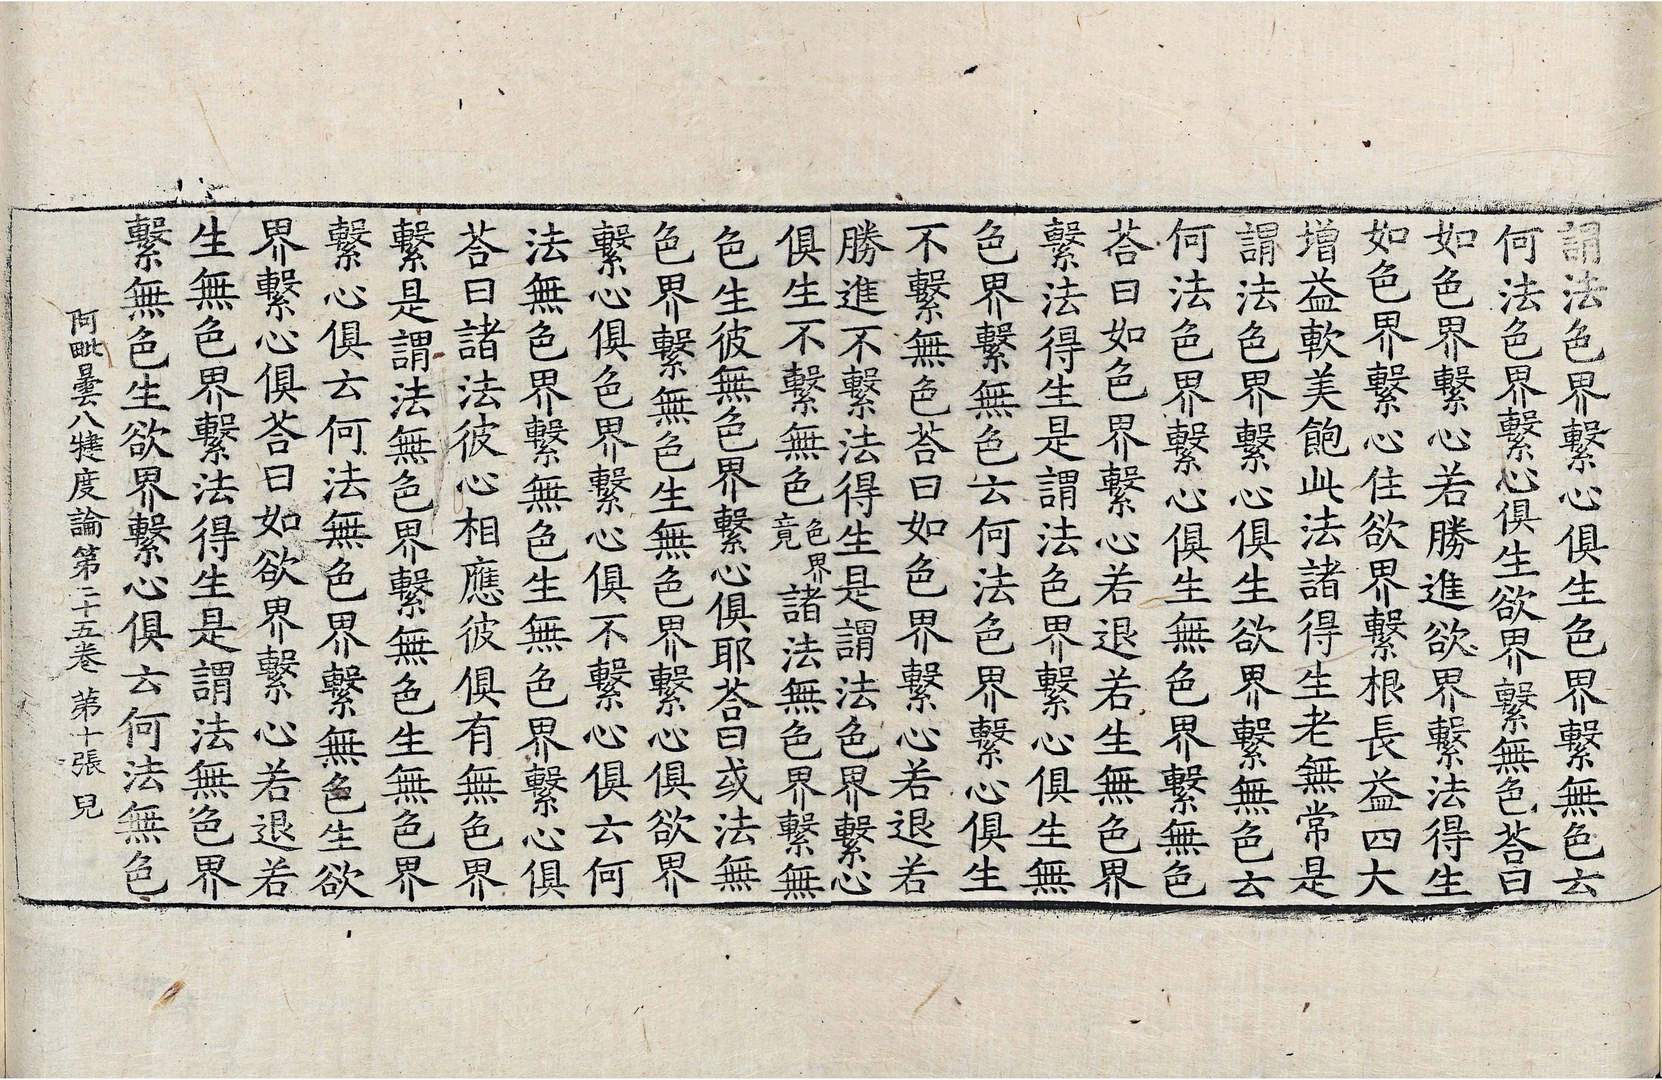 謂法色界繫心俱生色界繫無色云
何法色界繫心俱生欲界繫無色荅曰
如色界繫心若勝進欲界繫法得生
如色界繫心住欲界繫根長益四大
增益軟美飽此法諸得生老無常是
謂法色界繫心俱生欲界繫無色云
何法色界繫心俱生無色界繫無色
荅曰如色界繫心若退若生無色界
繫法得生是謂法色界繫心俱生無
色界繫無色云何法色界繫心俱生
不繫無色荅曰如色界繫心若退若
勝進不繫法得生是謂法色界繫心
俱生不繫無色色界竟諸法無色界繫無
色生彼無色界繫心俱耶荅曰或法無
色界繫無色生無色界繫心俱欲界
繫心俱色界繫心俱不繫心俱云何
法無色界繫無色生無色界繫心俱
荅曰諸法彼心相應彼俱有無色界
繫是謂法無色界繫無色生無色界
繫心俱云何法無色界繫無色生欲
界繫心俱荅曰如欲界繫心若退若
生無色界繫法得生是謂法無色界
繫無色生欲界繫心俱云何法無色
阿毗曇八犍度論第二十五卷 第十張 兒